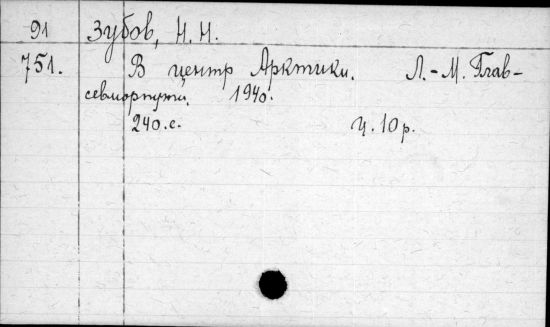 91 Зубов, Н. Н.
751. В центр Арктики. Л.-М. Глав-
севморпути. 1940.
240.с. Ц. 10 р.